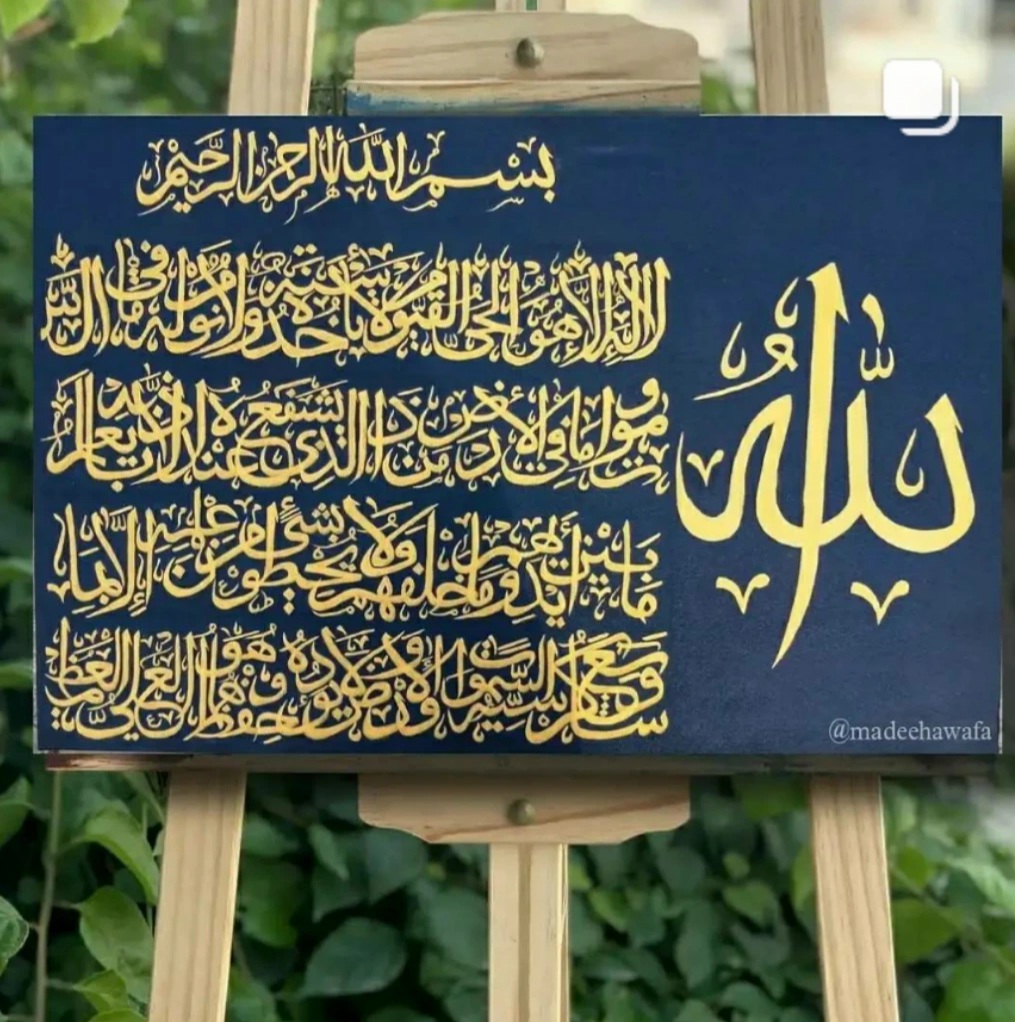 بسم الله الرحمن الرحيم
الله
لا إله إلا هو الحي القيوم لا تأخذه سنة ولا نوم له ما في الس
موات وما في الأرض من ذا الذي يشفع عنده إلا بإذنه يعلم
ما بين أيديهم وما خلفهم ولا يحيطون بشيء من علمه إلا بما
شاء وسع كرسيه السموات والأرض ولا يئوده حفظهما وهو العلي العظيم
@madeehawafa